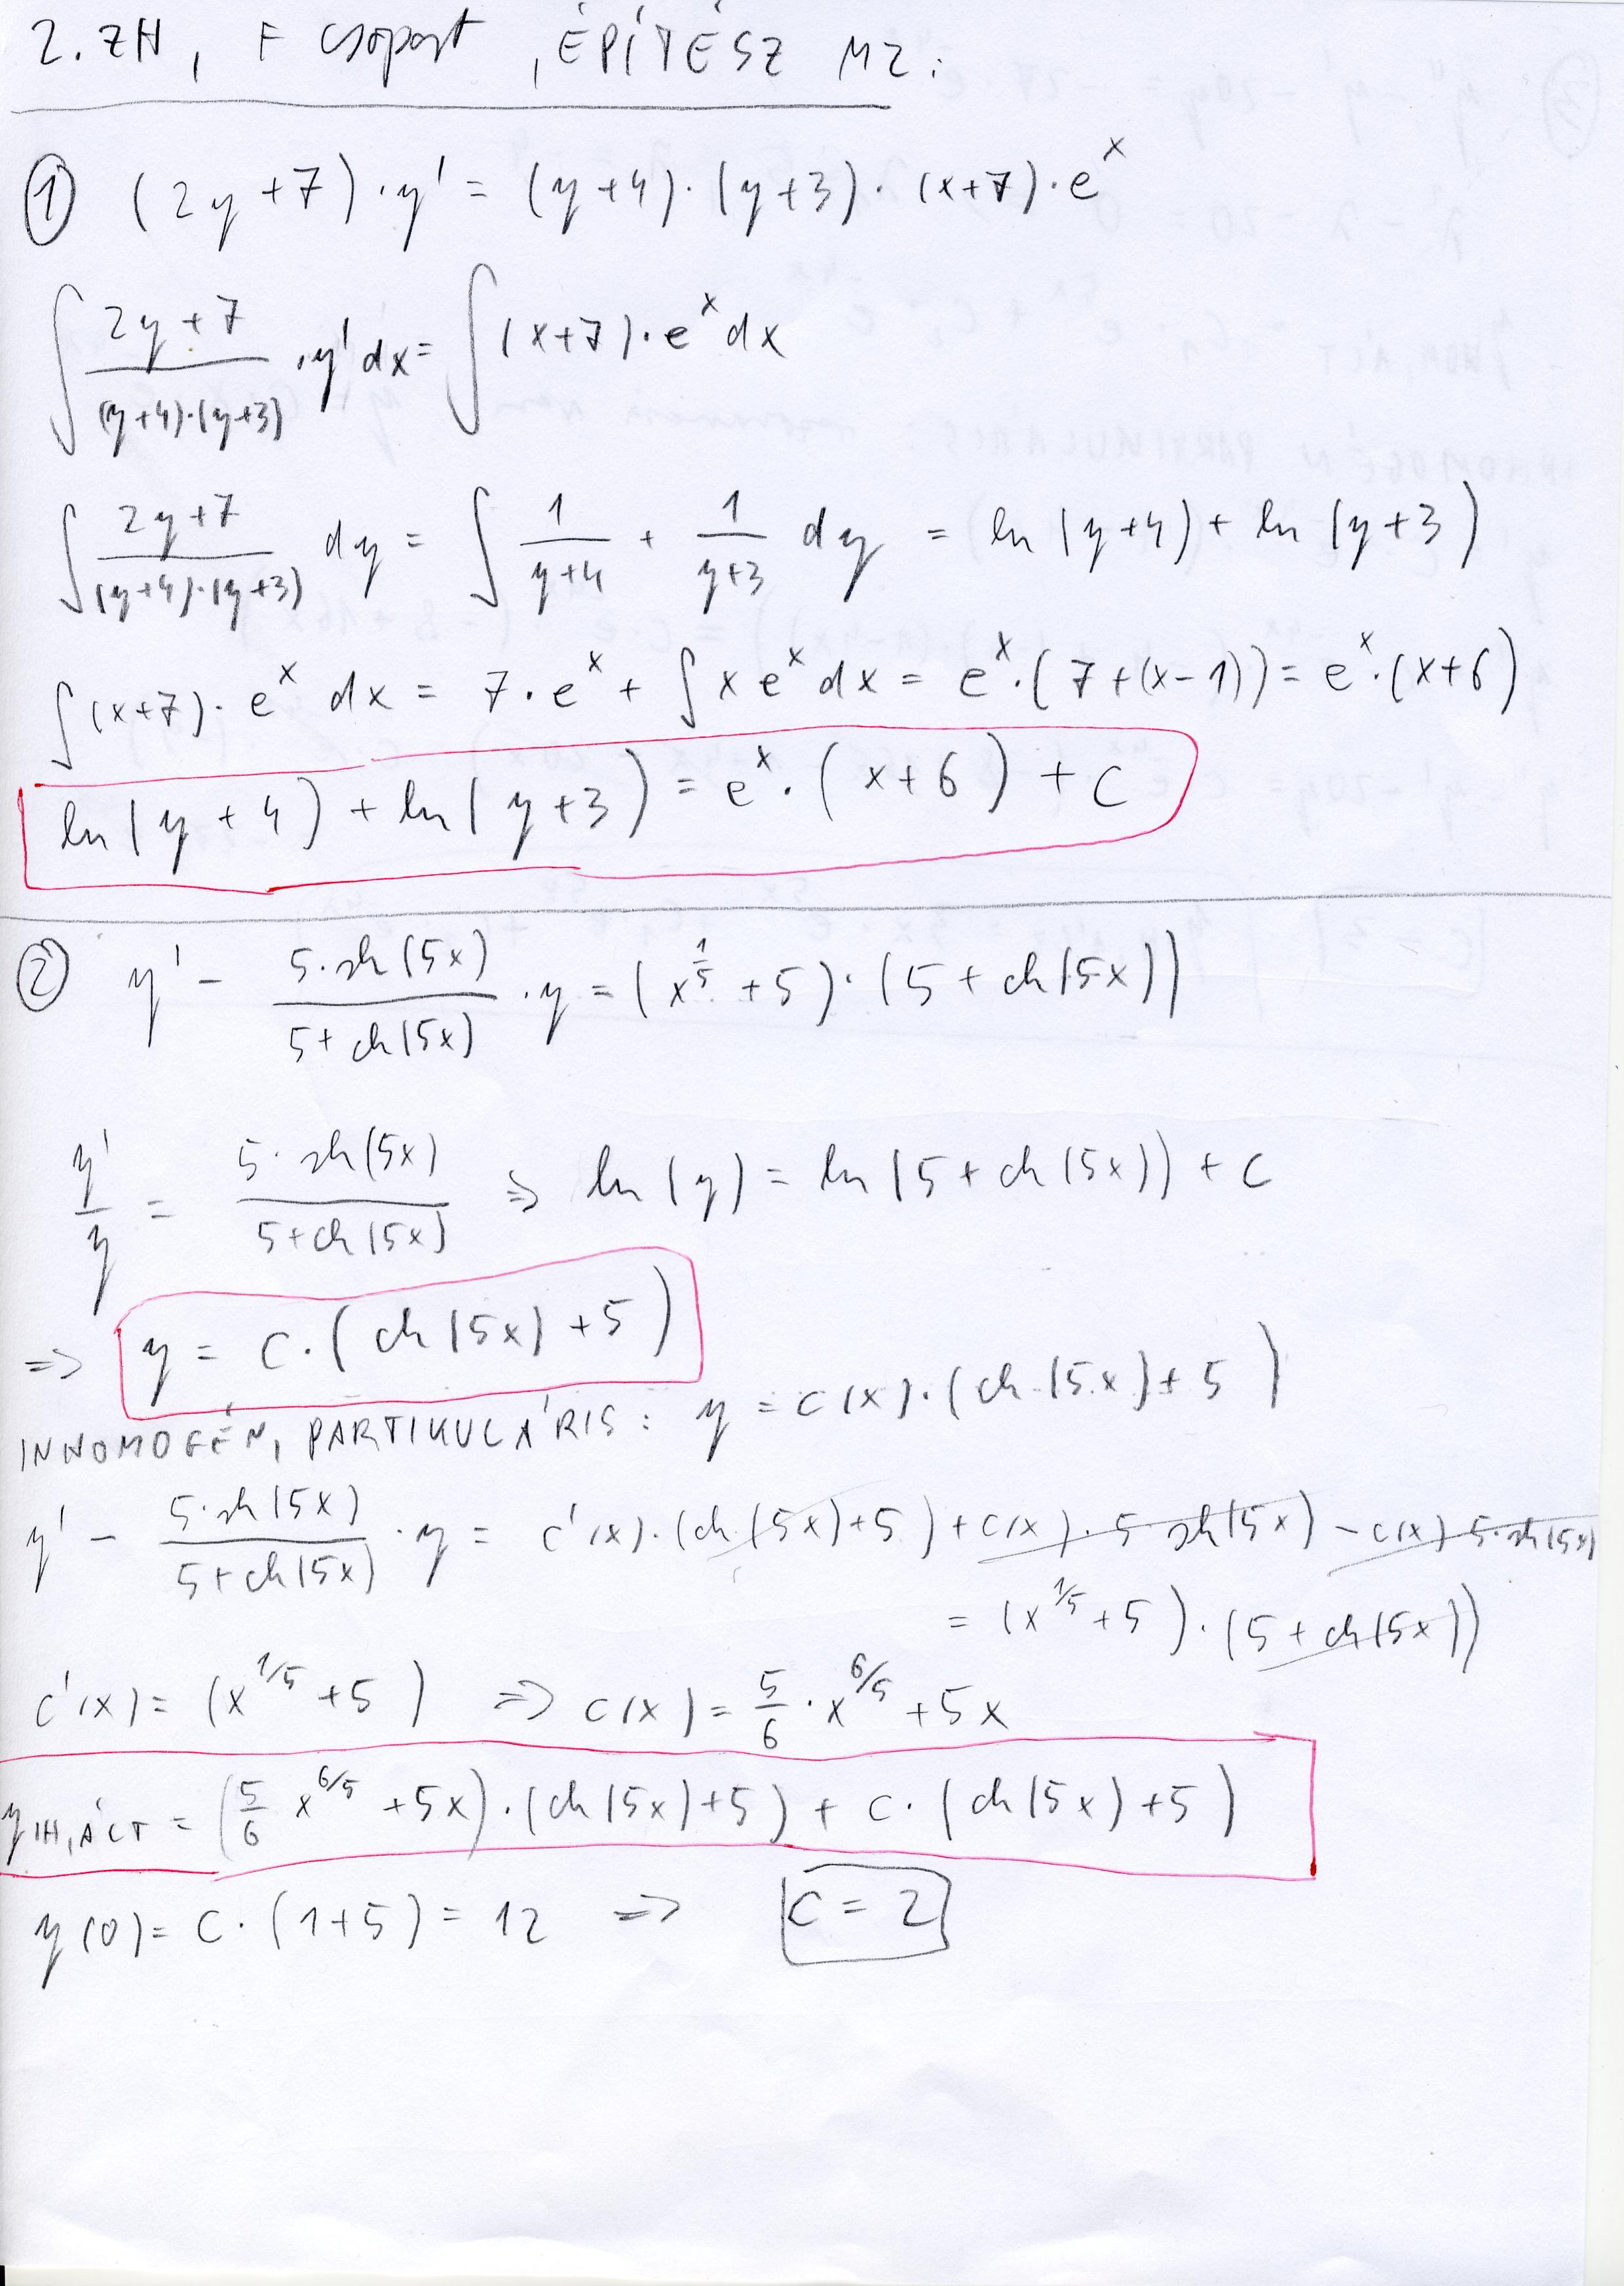 2. ZH, F csoport, ÉPÍTÉSZ M2.
① (2y+7)·y' = (y+4)·(y+3)·(x+7)·e^x
∫ (2y+7)/((y+4)·(y+3)) ·y' dx = ∫ (x+7)·e^x dx
∫ (2y+7)/((y+4)·(y+3)) dy = ∫ 1/(y+4) + 1/(y+3) dy = ln(y+4) + ln(y+3)
∫ (x+7)·e^x dx = 7·e^x + ∫ x e^x dx = e^x·(7+(x-1)) = e^x·(x+6)
ln(y+4) + ln(y+3) = e^x·(x+6) + C
② y' - (5·sh(5x))/(5+ch(5x)) ·y = (x^(1/5) +5)·(5+ch(5x))
y'/y = (5·sh(5x))/(5+ch(5x)) ⇒ ln(y) = ln(5+ch(5x)) + C
⇒ y = C·(ch(5x)+5)
INHOMOGÉN, PARTIKULÁRIS: y = C(x)·(ch(5x)+5)
y' - (5·sh(5x))/(5+ch(5x)) ·y = C'(x)·(ch(5x)+5) + C(x)·5 sh(5x) - C(x) 5·sh(5x)
= (x^(1/5) +5)·(5+ch(5x))
C'(x) = (x^(1/5) +5) ⇒ C(x) = 5/6 · x^(6/5) + 5x
y IH, ÁLT = (5/6 x^(6/5) +5x)·(ch(5x)+5) + C·(ch(5x)+5)
y(0) = C·(1+5) = 12 ⇒ C = 2